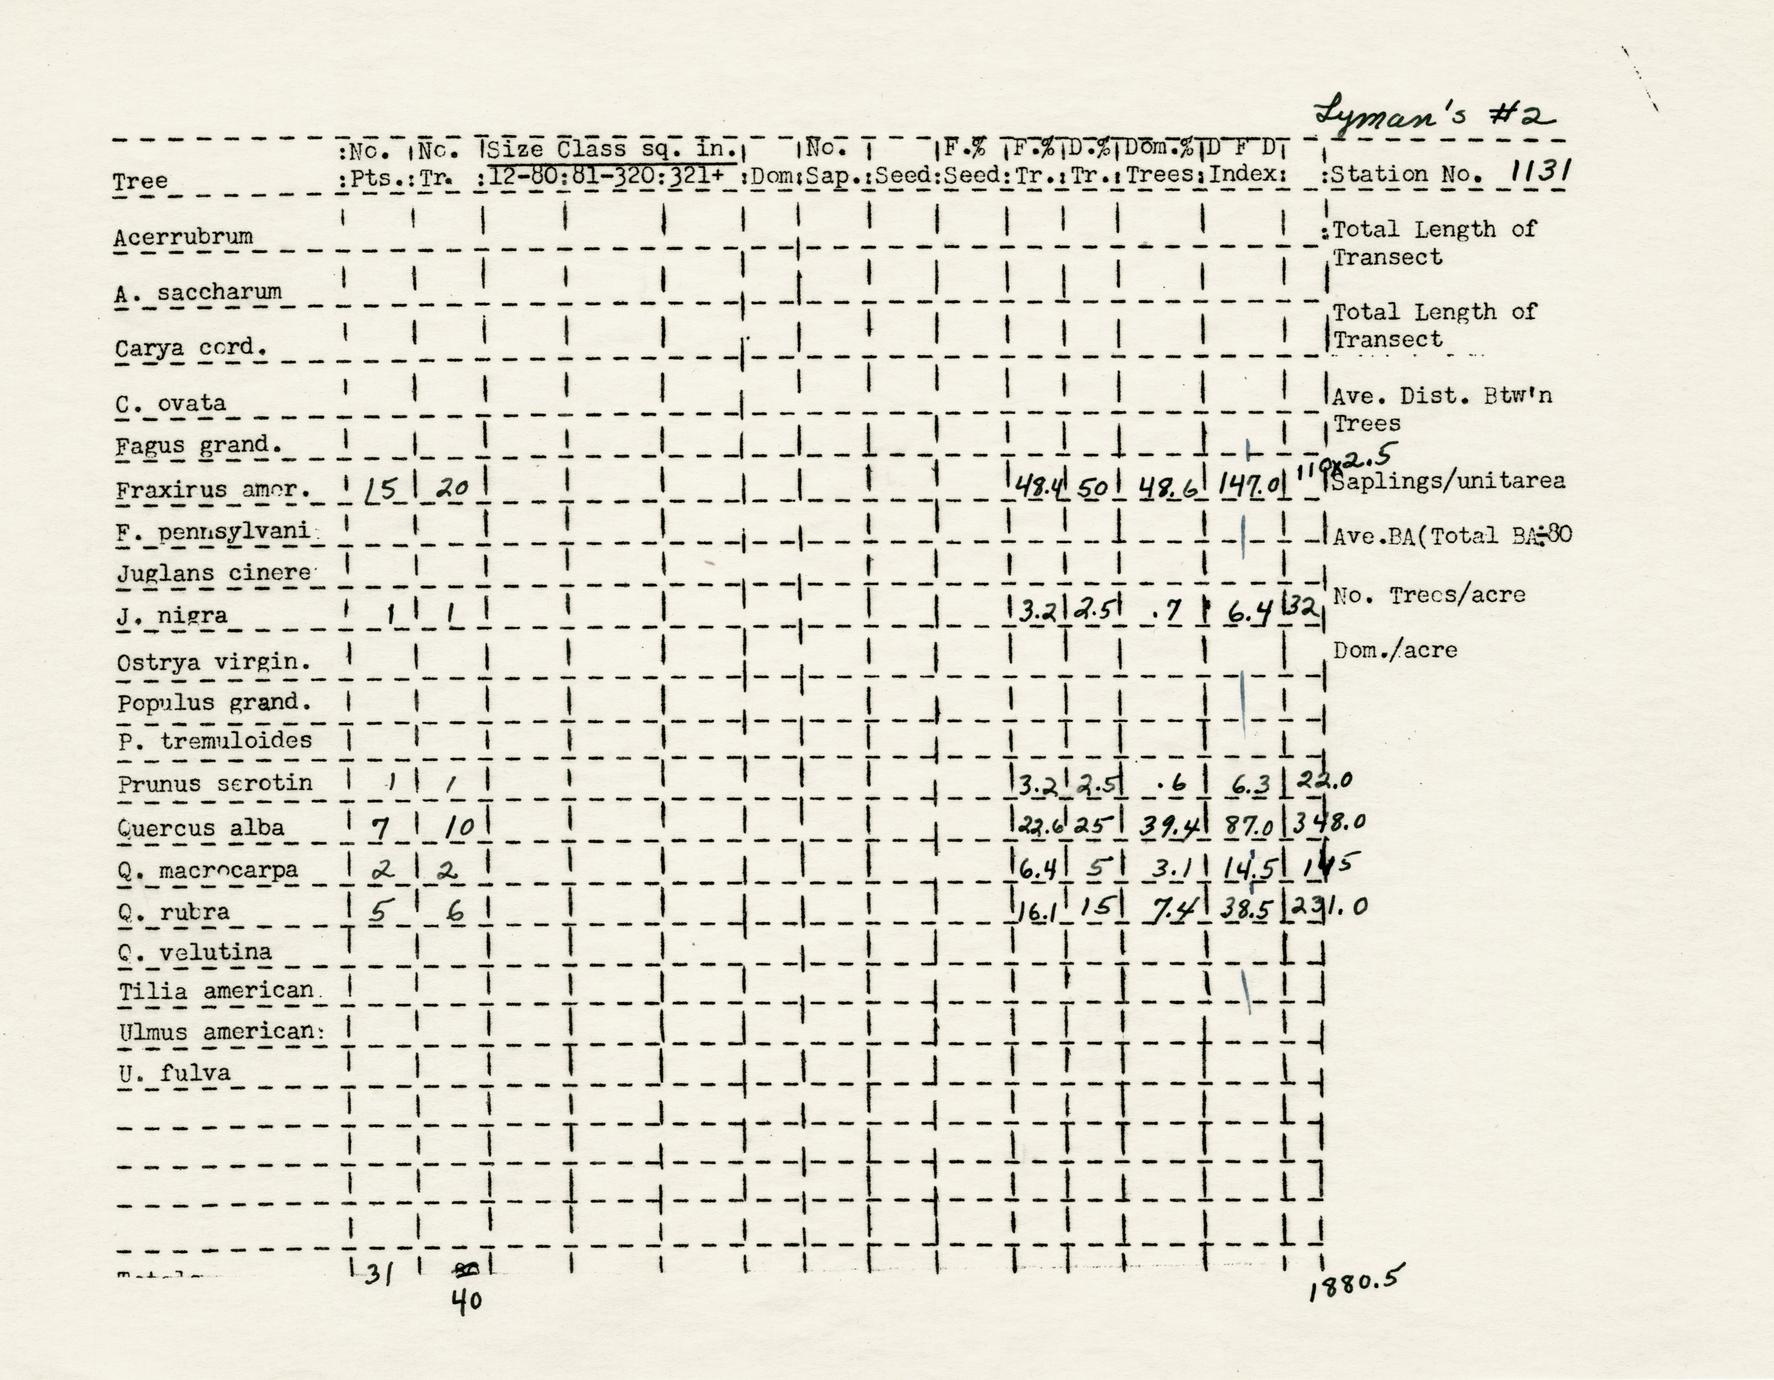 Lyman's #2
:No. No. Size Class sq. in. No. F.% F.% D.% Dom.% D F D
Tree :Pts.:Tr. :12-80:81-320:321+ :Dom:Sap.:Seed:Seed:Tr.:Tr.:Trees:Index: :Station No. 1131
Acerrubrum :Total Length of
Transect
A. saccharum
Total Length of
Carya cord. Transect
C. ovata Ave. Dist. Btw'n
Trees
Fagus grand.
Fraxirus amer. 15 20 48.4 50 48.6 147.0 Saplings/unitarea
F. pennsylvani Ave.BA(Total BA÷80
Juglans cinere
J. nigra 1 1 3.2 2.5 .7 6.4 32 No. Trees/acre
Ostrya virgin. Dom./acre
Populus grand.
P. tremuloides
Prunus serotin 1 1 3.2 2.5 .6 6.3 22.0
Quercus alba 7 10 22.6 25 39.4 87.0 348.0
Q. macrocarpa 2 2 6.4 5 3.1 14.5 145
Q. rubra 5 6 16.1 15 7.4 38.5 231.0
Q. velutina
Tilia american
Ulmus american:
U. fulva
31
40 1880.5